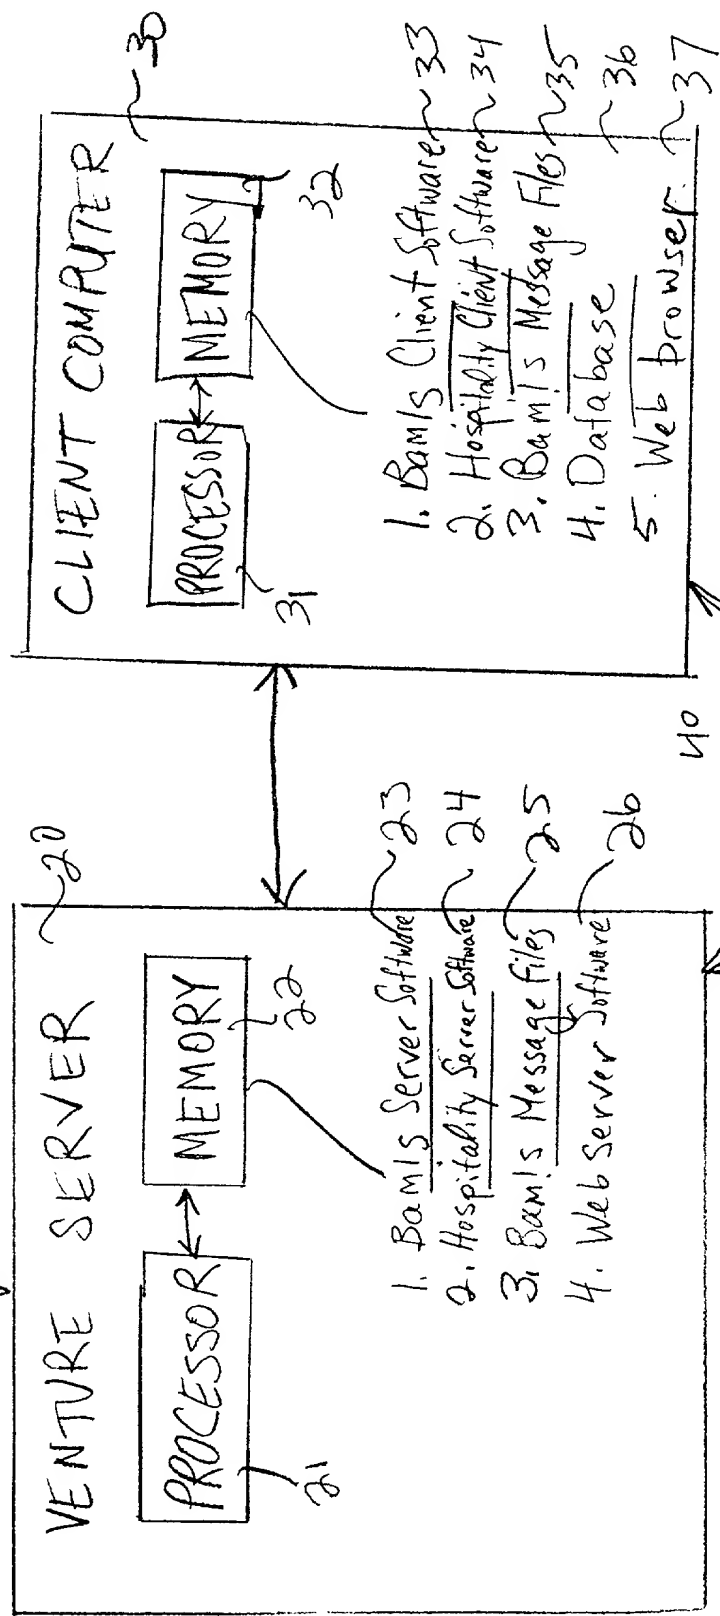 VENTURE SERVER
20
PROCESSOR
MEMORY
21
22
1. Bam!s Server Software 23
2. Hospitality Server Software 24
3. Bam!s Message Files 25
4. Web Server Software 26
CLIENT COMPUTER
30
PROCESSOR
MEMORY
31
32
1. Bam!s Client Software 33
2. Hospitality Client Software 34
3. Bam!s Message Files 35
4. Database 36
5. Web browser 37
40